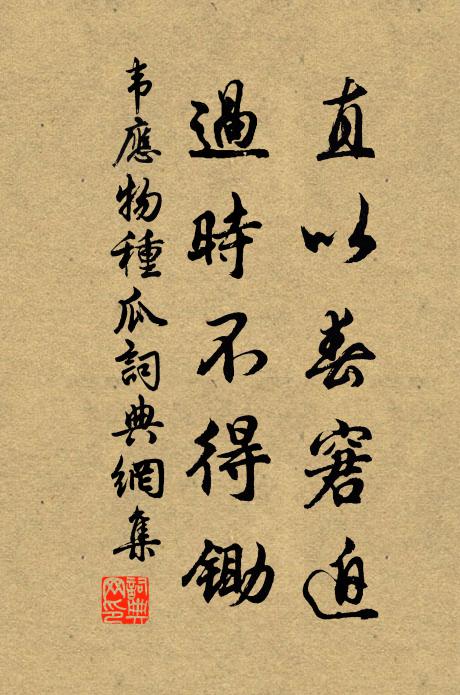 直以春窘迫
過時不得鋤
韦應物種瓜詞典網集
詞典
网印